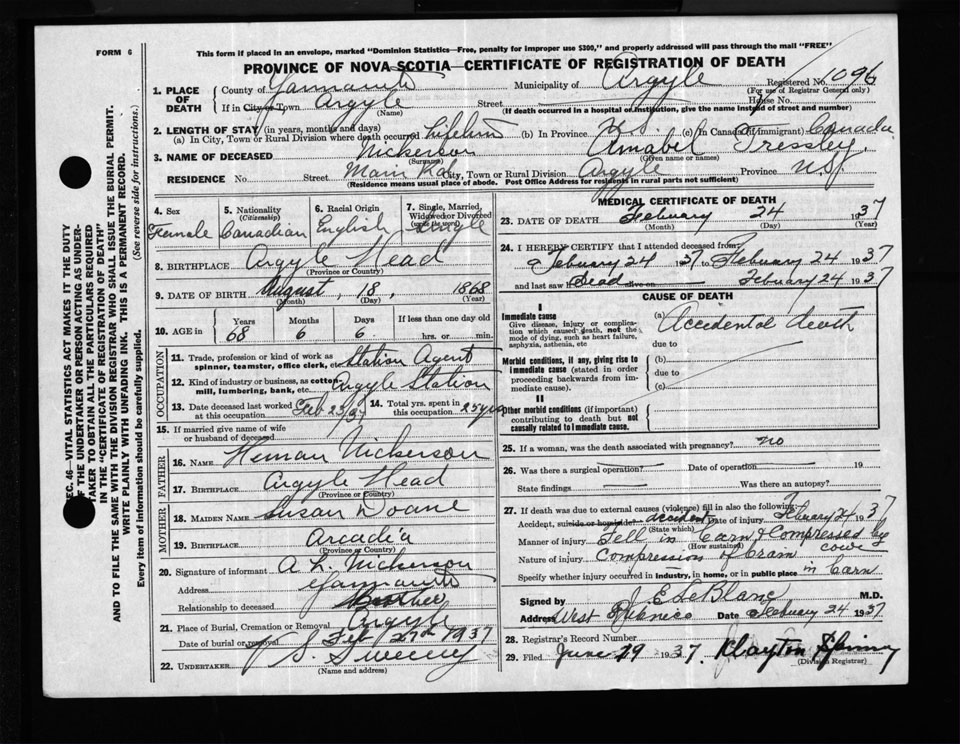 FORM 6
This form if placed in an envelope, marked "Dominion Statistics—Free, penalty for improper use $300," and properly addressed will pass through the mail "FREE"
PROVINCE OF NOVA SCOTIA—CERTIFICATE OF REGISTRATION OF DEATH
SEC. 46—VITAL STATISTICS ACT MAKES IT THE DUTY
OF THE UNDERTAKER OR PERSON ACTING AS UNDER-
TAKER TO OBTAIN ALL THE PARTICULARS REQUIRED
IN THE "CERTIFICATE OF REGISTRATION OF DEATH"
AND TO FILE THE SAME WITH THE DIVISION REGISTRAR WHO SHALL ISSUE THE BURIAL PERMIT.
WRITE PLAINLY WITH UNFADING INK. THIS IS A PERMANENT RECORD.
Every item of information should be carefully supplied. (See reverse side for instructions.)
1. PLACE OF DEATH County of Yarmouth Municipality of Argyle Registered No. 1096
(For use of Registrar General only)
If in City or Town Argyle Street House No.
(Name) (If death occurred in a hospital or institution, give the name instead of street and number)
2. LENGTH OF STAY (in years, months and days)
(a) In City, Town or Rural Division where death occurred Lifetime (b) In Province N.S. (c) In Canada (if immigrant) Canada
3. NAME OF DECEASED Nickerson Annabel Tressley
(Surname) (Given name or names)
RESIDENCE No. Street Main Rd. City, Town or Rural Division Argyle Province N.S.
(Residence means usual place of abode. Post Office Address for residents in rural parts not sufficient)
4. Sex Female
5. Nationality (Citizenship) Canadian
6. Racial Origin English
7. Single, Married, Widowed or Divorced Single
8. BIRTHPLACE Argyle Head
(Province or Country)
9. DATE OF BIRTH August, 18, 1868
(Month) (Day) (Year)
10. AGE in Years 68 Months 6 Days 6 If less than one day old hrs. or min.
OCCUPATION
11. Trade, profession or kind of work as spinner, teamster, office clerk, etc. Station Agent
12. Kind of industry or business, as cotton mill, lumbering, bank, etc. Argyle Station
13. Date deceased last worked at this occupation Feb 23/37 14. Total yrs. spent in this occupation 25 yrs
15. If married give name of wife
or husband of deceased
FATHER
16. NAME Heman Nickerson
17. BIRTHPLACE Argyle Head
(Province or Country)
MOTHER
18. MAIDEN NAME Susan Doane
19. BIRTHPLACE Arcadia
(Province or Country)
20. Signature of informant A. L. Nickerson
Address Yarmouth
Relationship to deceased Brother
21. Place of Burial, Cremation or Removal Argyle
Date of burial or removal Feb 27th 1937
22. UNDERTAKER V. S. Sweeney
(Name and address)
MEDICAL CERTIFICATE OF DEATH
23. DATE OF DEATH February 24 1937
(Month) (Day) (Year)
24. I HEREBY CERTIFY that I attended deceased from:
February 24 1937 to February 24 1937
and last saw dead alive on February 24 1937
CAUSE OF DEATH
I
Immediate cause
Give disease, injury or complication which caused death, not the mode of dying, such as heart failure, asphyxia, asthenia, etc
(a) Accidental death
due to
Morbid conditions, if any, giving rise to immediate cause (stated in order proceeding backwards from immediate cause).
(b)
due to
(c)
II
Other morbid conditions (if important) contributing to death but not causally related to immediate cause.
25. If a woman, was the death associated with pregnancy? no
26. Was there a surgical operation? — Date of operation — 19
State findings — Was there an autopsy?
27. If death was due to external causes (violence) fill in also the following:
Accident, suicide or homicide accident Date of injury February 24 1937
(State which)
Manner of injury Fell in barn & Compresses by cow
(How sustained)
Nature of injury Compression of brain
Specify whether injury occurred in industry, in home, or in public place in barn
Signed by J. E. LeBlanc M.D.
Address West Pubnico Date February 24 1937
28. Registrar's Record Number
29. Filed June 29 1937. Klayton Spinney
(Division Registrar)